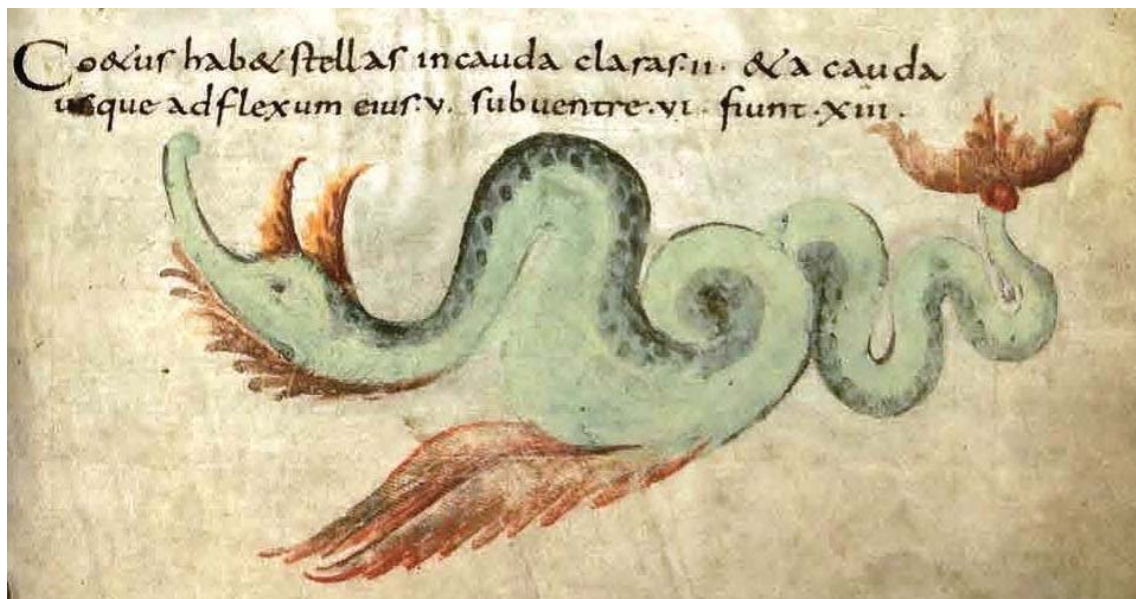 Co&us hab& stellas in cauda claras·ii· & a cauda
usque ad flexum eius·v· sub uentre·vi· fiunt·xiii·